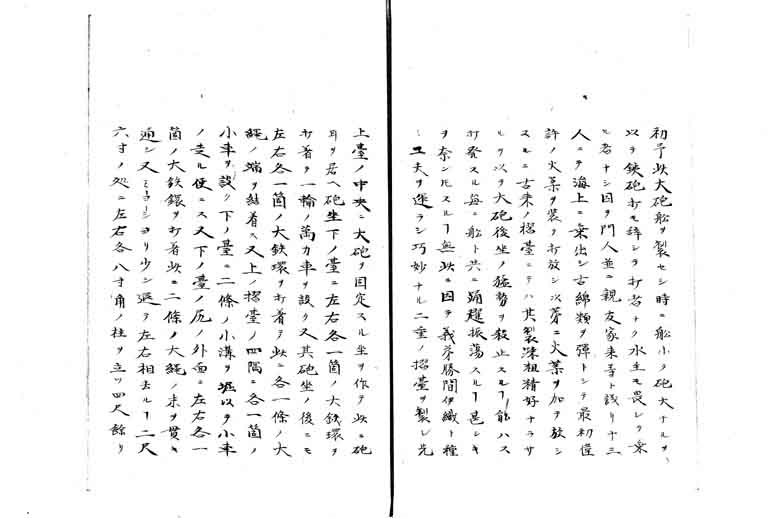 初予此大砲船ヲ製セシ時ニ船小ノ砲大ナルヲ
以テ鉄砲打モ辞シテ打者ナク水主モ畏レテ乗
ル者ナシ因テ門人並ニ親友家来等ト議リ十三
人ニテ海上ニ乗出シ古綿類ヲ弾トシテ最初僅
許ノ火薬ヲ装テ打放シ次第ニ火薬ヲ加ヘ放シ
スルニ古来ノ摺臺ニテハ其製深粗精好ナラサ
ルヲ以テ大砲後坐ノ猛勢ヲ殺止スルヿ能ハス
打発スル毎ニ船ト共ニ踊躍振蕩スルヿ甚シキ
ヲ奈ン𪜈スルヿ無シ因テ義弟勝間伊織ト種
々工夫ヲ運ラシ巧妙ナル二重ノ摺臺ヲ製シ先
上臺ノ中央ニ大砲ヲ固定スル坐ヲ作テ此ニ砲
耳ヲ居ヘ砲坐下ノ臺ニ左右各一箇ノ大鉄環ヲ
打着ケ一輪ノ萬力車ヲ設ク又其砲坐ノ後ニモ
左右各一箇ノ大鉄環ヲ打着テ此ニ各一條ノ大
縄ノ端ヲ結着ス又上ノ摺臺ノ四隅ニ各一箇ノ
小車ヲ設ク下ノ臺ニ二條ノ小溝ヲ堀以テ小車
ノ走ル便ニス又下ノ臺ノ尻ノ外面ニ左右各一
箇ノ大鉄鐶ヲ打着此ニ二條ノ大縄ノ末ヲ貫キ
通シ又ミヨシヨリ少シ退テ左右相去ルヿ二尺
六寸ノ処ニ左右各八寸角ノ柱ヲ立ツ四尺餘リ